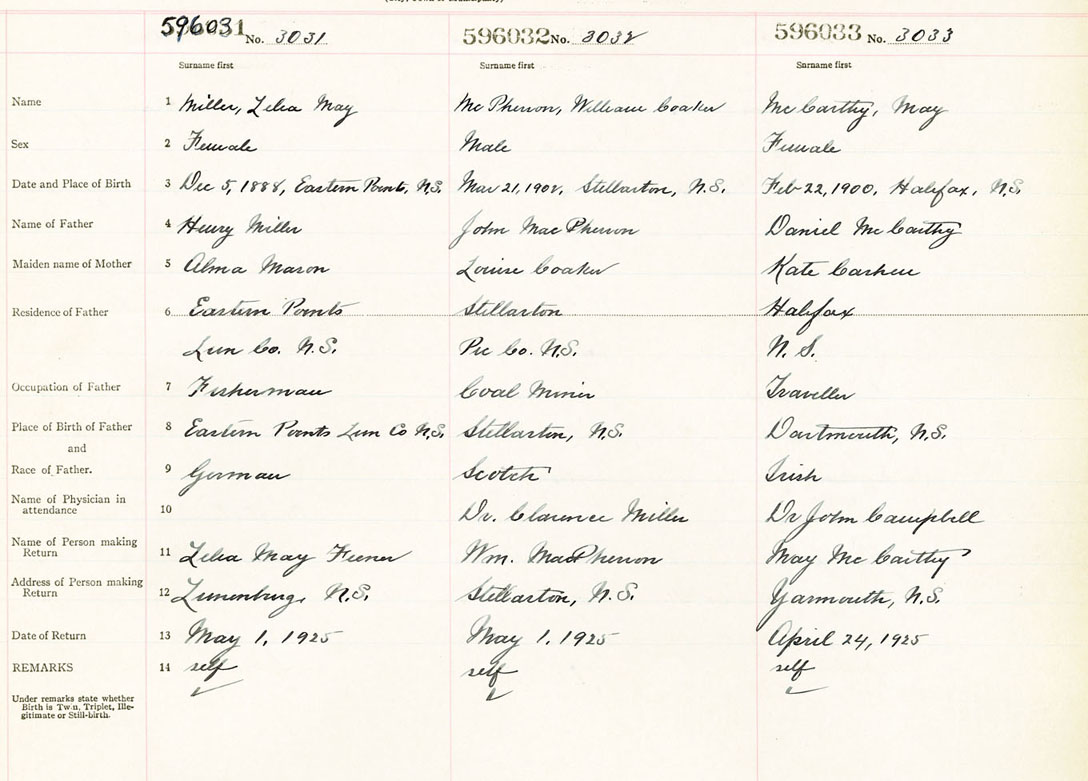 596031 No. 3031 596032 No. 3032 596033 No. 3033
Surname first Surname first Surname first
Name 1 Miller, Lelia May McPherson, William Coaker McCarthy, May
Sex 2 Female Male Female
Date and Place of Birth 3 Dec 5, 1888, Eastern Points, N.S. Mar 21, 1902, Stellarton, N.S. Feb 22, 1900, Halifax, N.S.
Name of Father 4 Henry Miller John MacPherson Daniel McCarthy
Maiden name of Mother 5 Alma Mason Louise Coaker Kate Cashen
Residence of Father 6 Eastern Points Stellarton Halifax
Lun Co. N.S. Pic Co. N.S. N.S.
Occupation of Father 7 Fisherman Coal Miner Traveller
Place of Birth of Father 8 Eastern Points Lun Co N.S. Stellarton, N.S. Dartmouth, N.S.
and
Race of Father. 9 German Scotch Irish
Name of Physician in
attendance 10 Dr. Clarence Miller Dr John Campbell
Name of Person making
Return 11 Lelia May Feener Wm. MacPherson May McCarthy
Address of Person making
Return 12 Lunenburg, N.S. Stellarton, N.S. Yarmouth, N.S.
Date of Return 13 May 1, 1925 May 1, 1925 April 24, 1925
REMARKS 14 self self self
Under remarks state whether
Birth is Twin, Triplet, Ille-
gitimate or Still-birth.